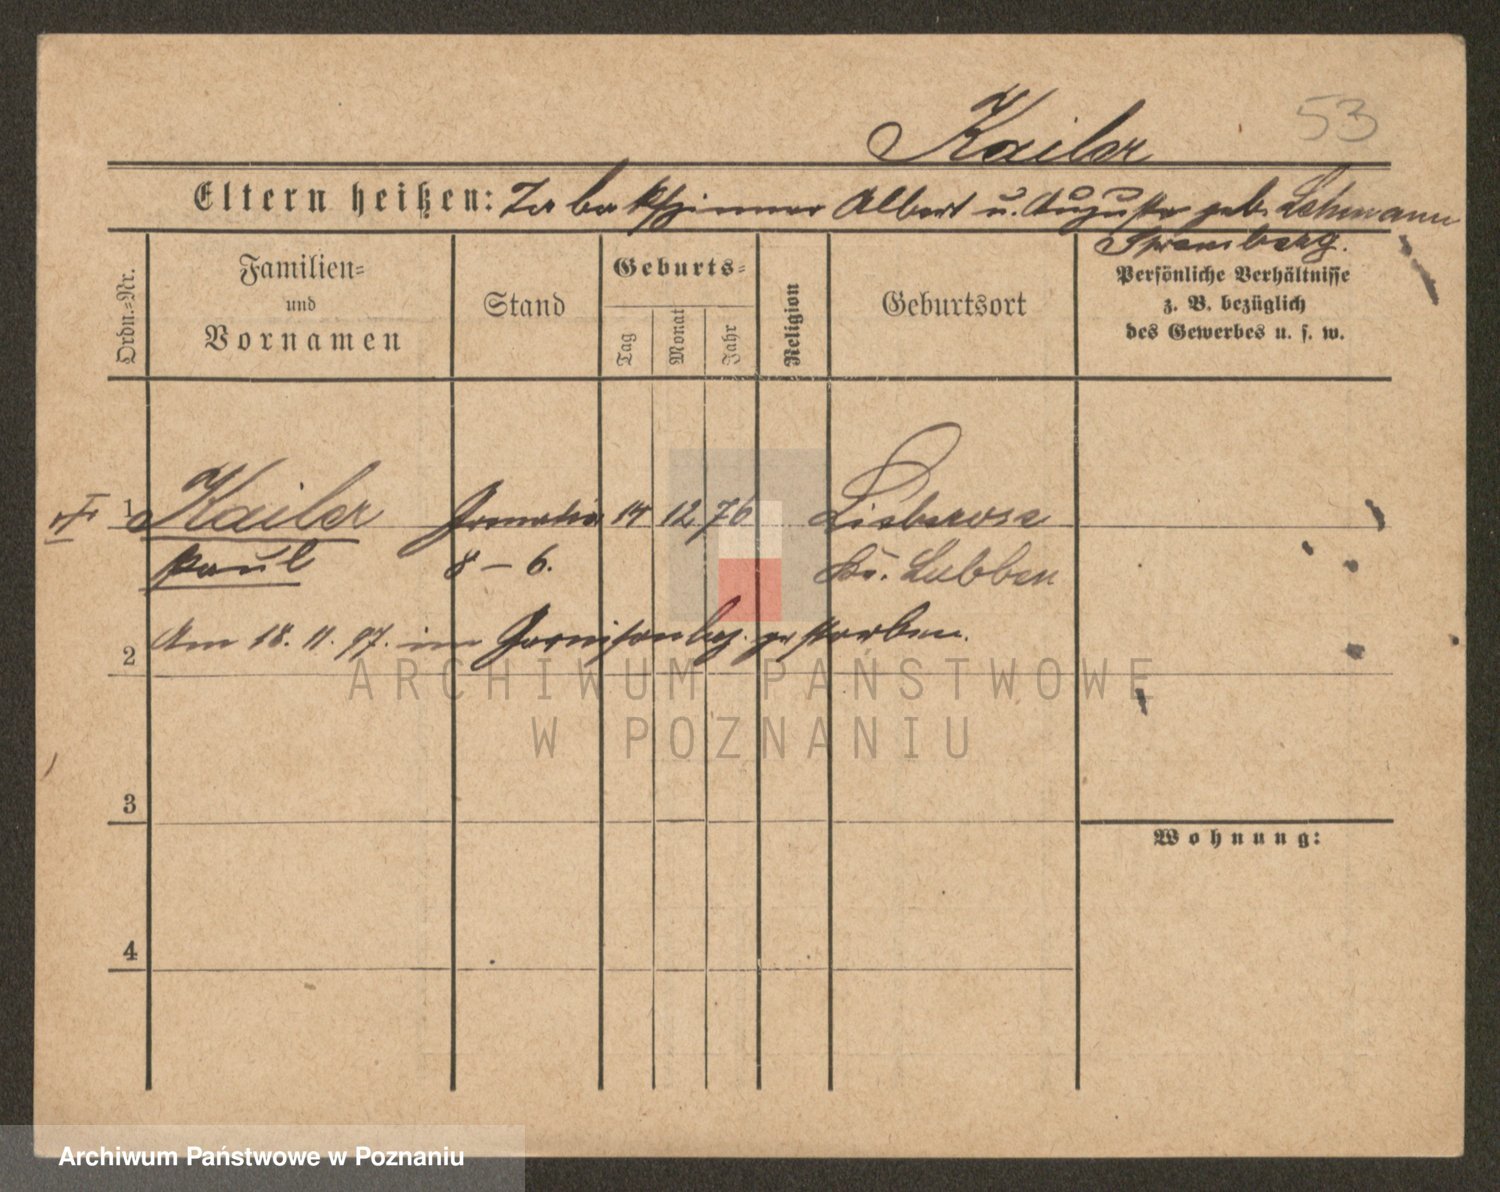 53
Kailer
Eltern heißen: Tabakspinner Albert u. Auguste geb. Lehmann
Spremberg.
Ordn.=Nr.
Familien=
und
Vornamen
Stand
Geburts=
Tag
Monat
Jahr
Religion
Geburtsort
Persönliche Verhältnisse
z. B. bezüglich
des Gewerbes u. s. w.
1 Kailer Grenadier 14 12 76 Lieberose
Paul 8 – 6. Kr. Lübben
2 Am 18. 11. 97. im Garnisonlaz. gestorben.
ARCHIWUM PAŃSTWOWE
W POZNANIU
3
Wohnung:
4
Archiwum Państwowe w Poznaniu